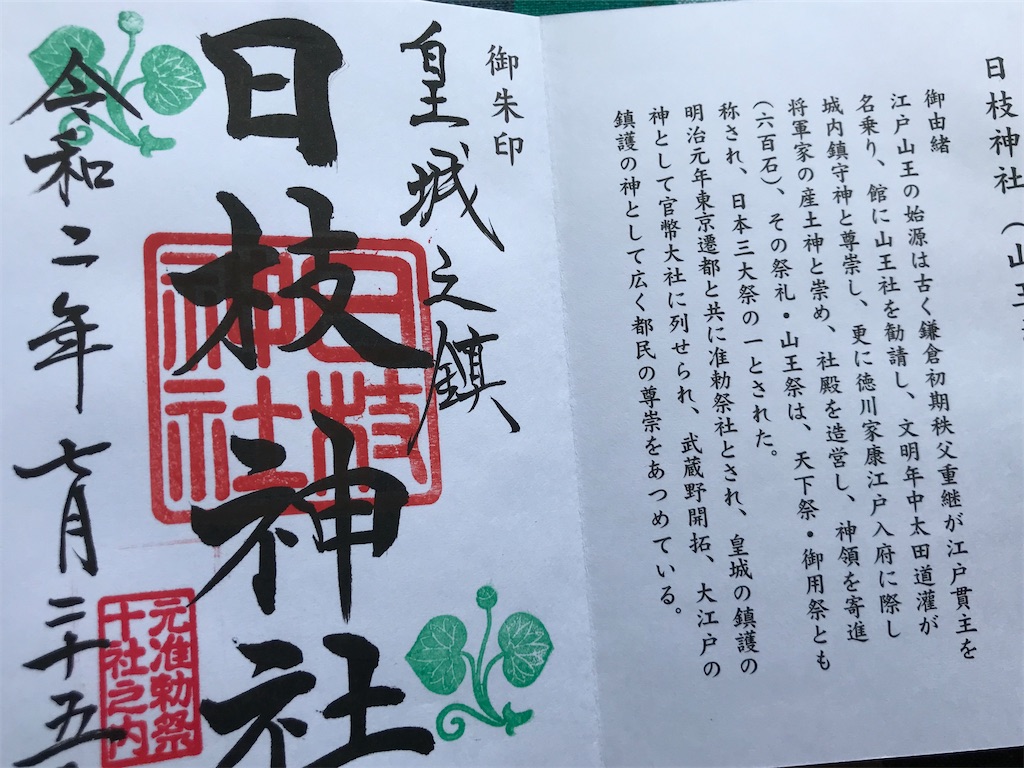 日枝神社(山王
御由緒
江戸山王の始源は古く鎌倉初期秩父重継が江戸貫主を
名乗り、館に山王社を勧請し、文明年中太田道灌が
城内鎮守神と尊崇し、更に徳川家康江戸入府に際し
将軍家の産土神と崇め、社殿を造営し、神領を寄進
(六百石)、その祭礼・山王祭は、天下祭・御用祭とも
称され、日本三大祭の一とされた。
明治元年東京遷都と共に准勅祭社とされ、皇城の鎮護の
神として官幣大社に列せられ、武蔵野開拓、大江戸の
鎮護の神として広く都民の尊崇をあつめている。
御朱印
皇城之鎮
日枝神社
日枝
神社
令和二年七月二十五
元准勅祭
十社之内